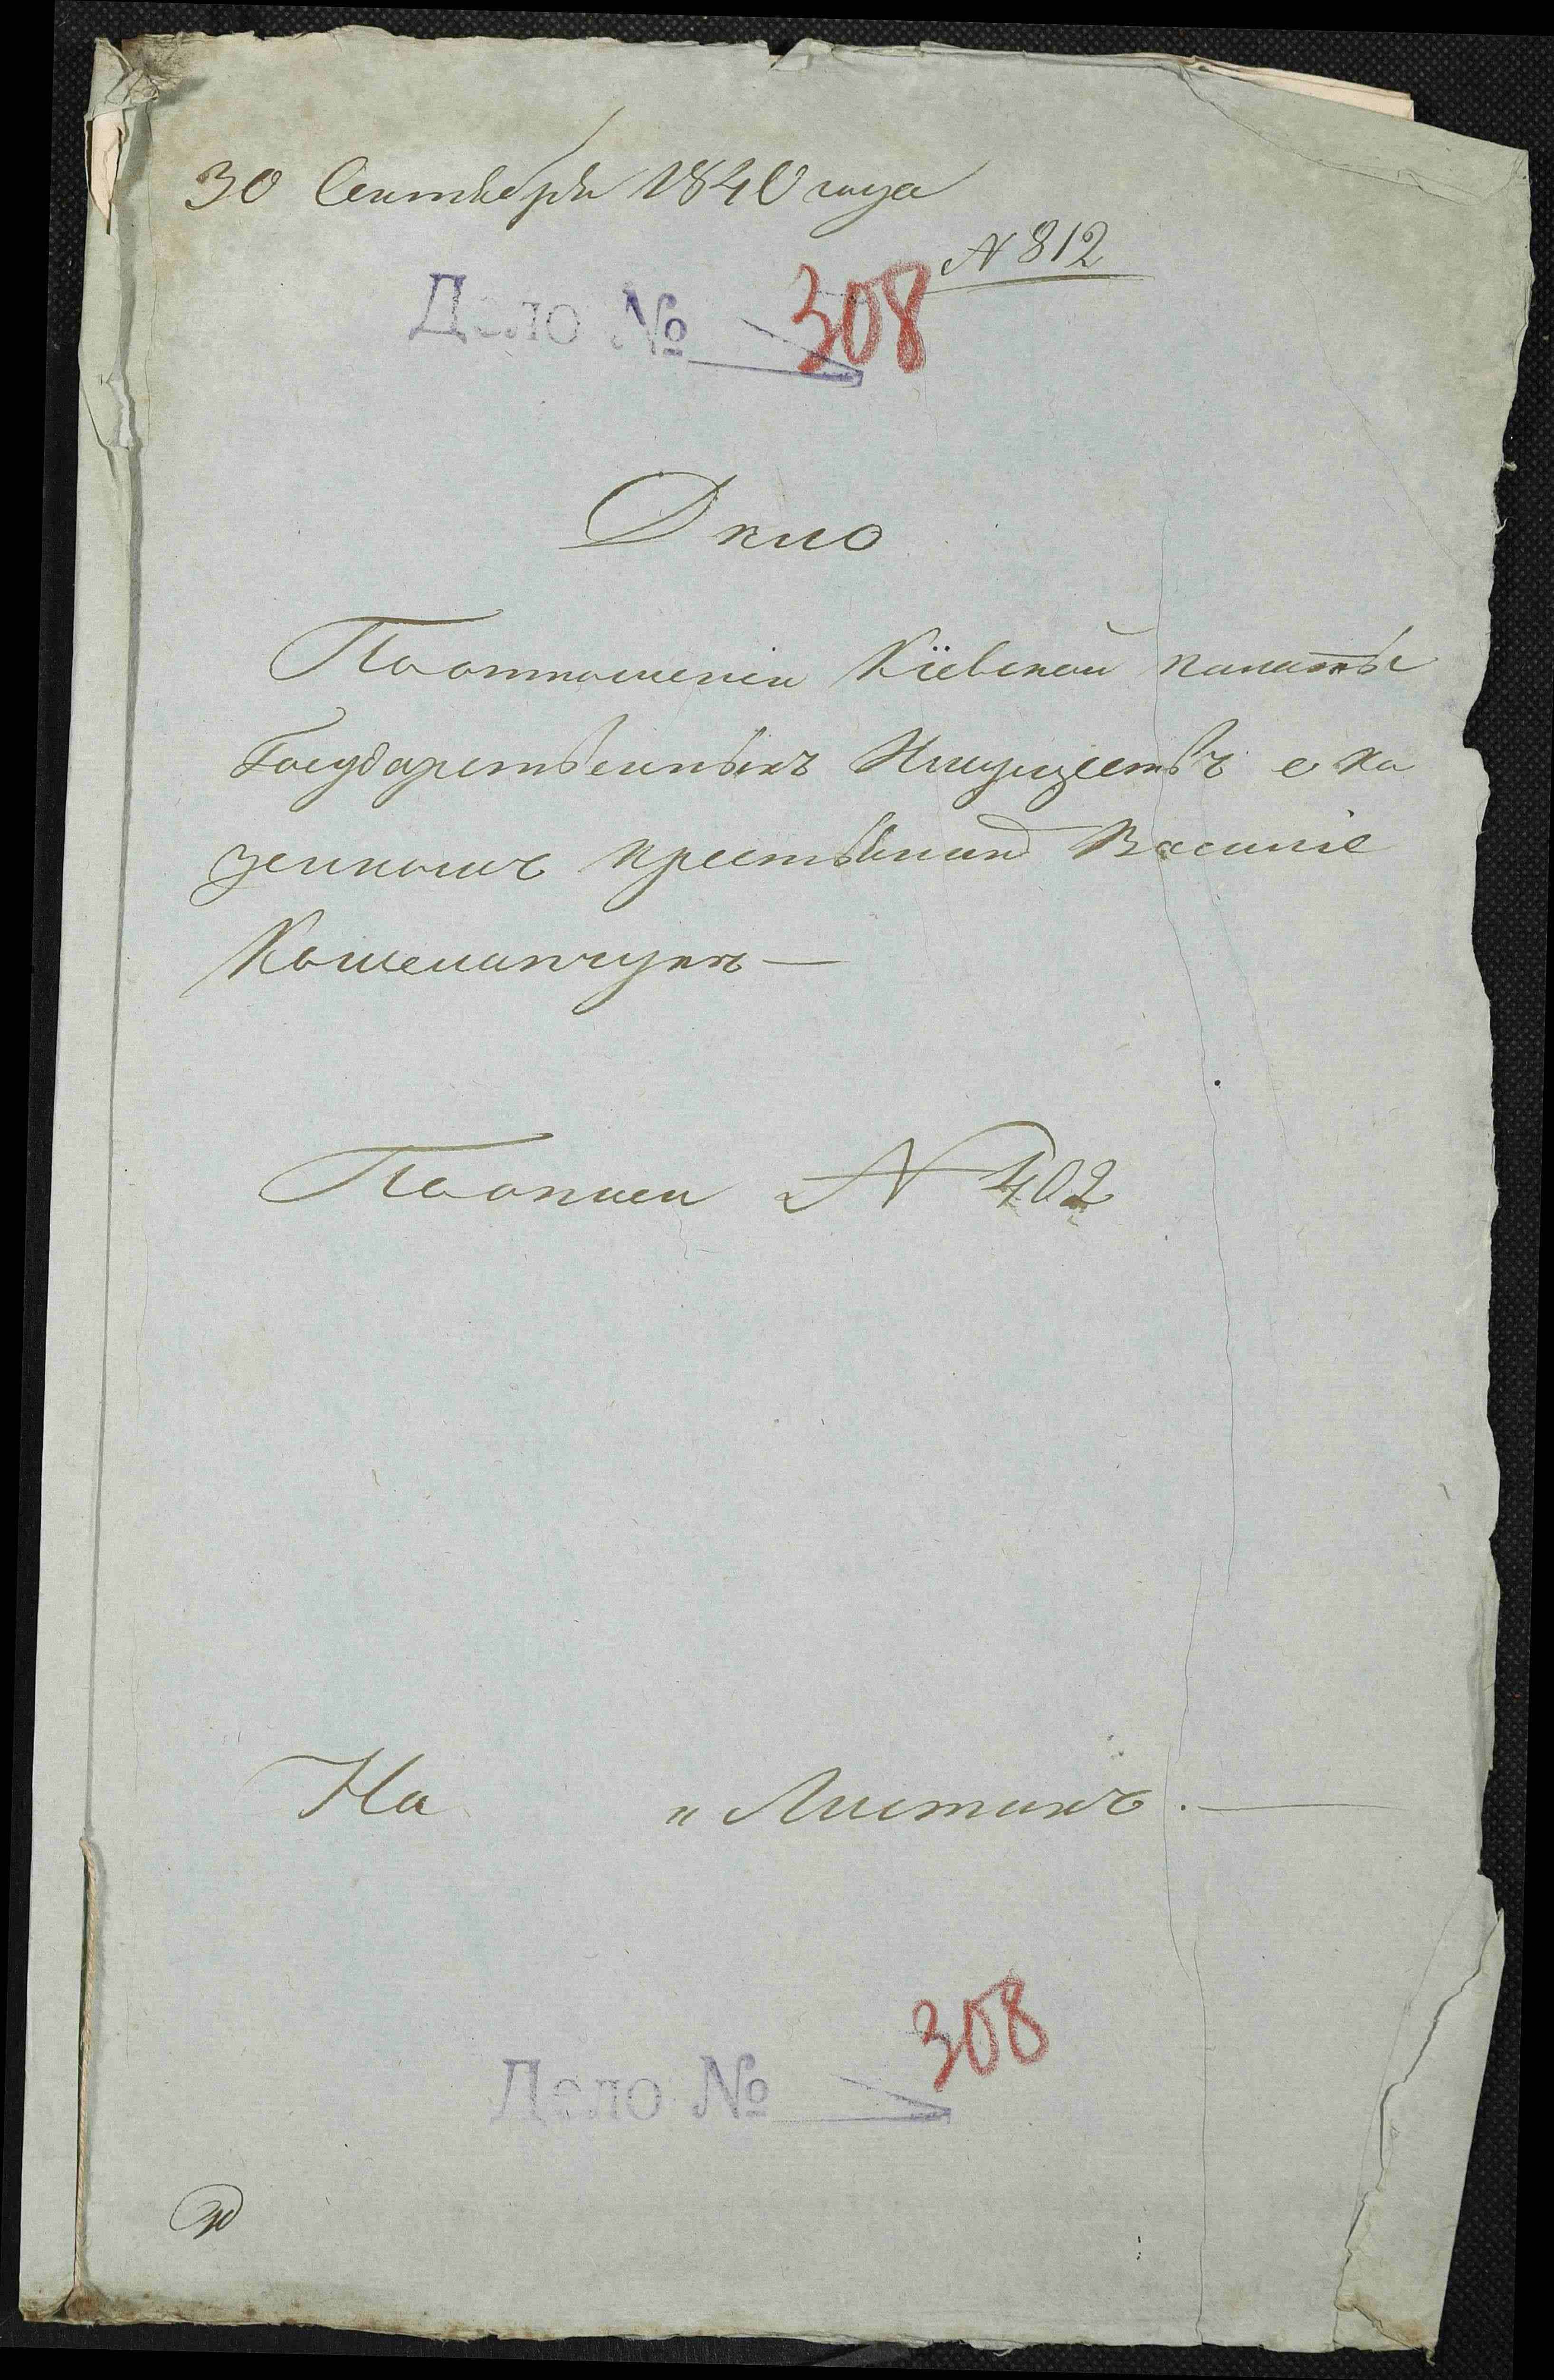 30 Сентября 1840 года
N 812
Дело № 308
Дѣло
По отношенію Кіевской палаты
Государственныхъ Имуществъ о ка
зенномъ крестьянинѣ Василіе
N 402
По описи
На " Листахъ.
Дело № 308